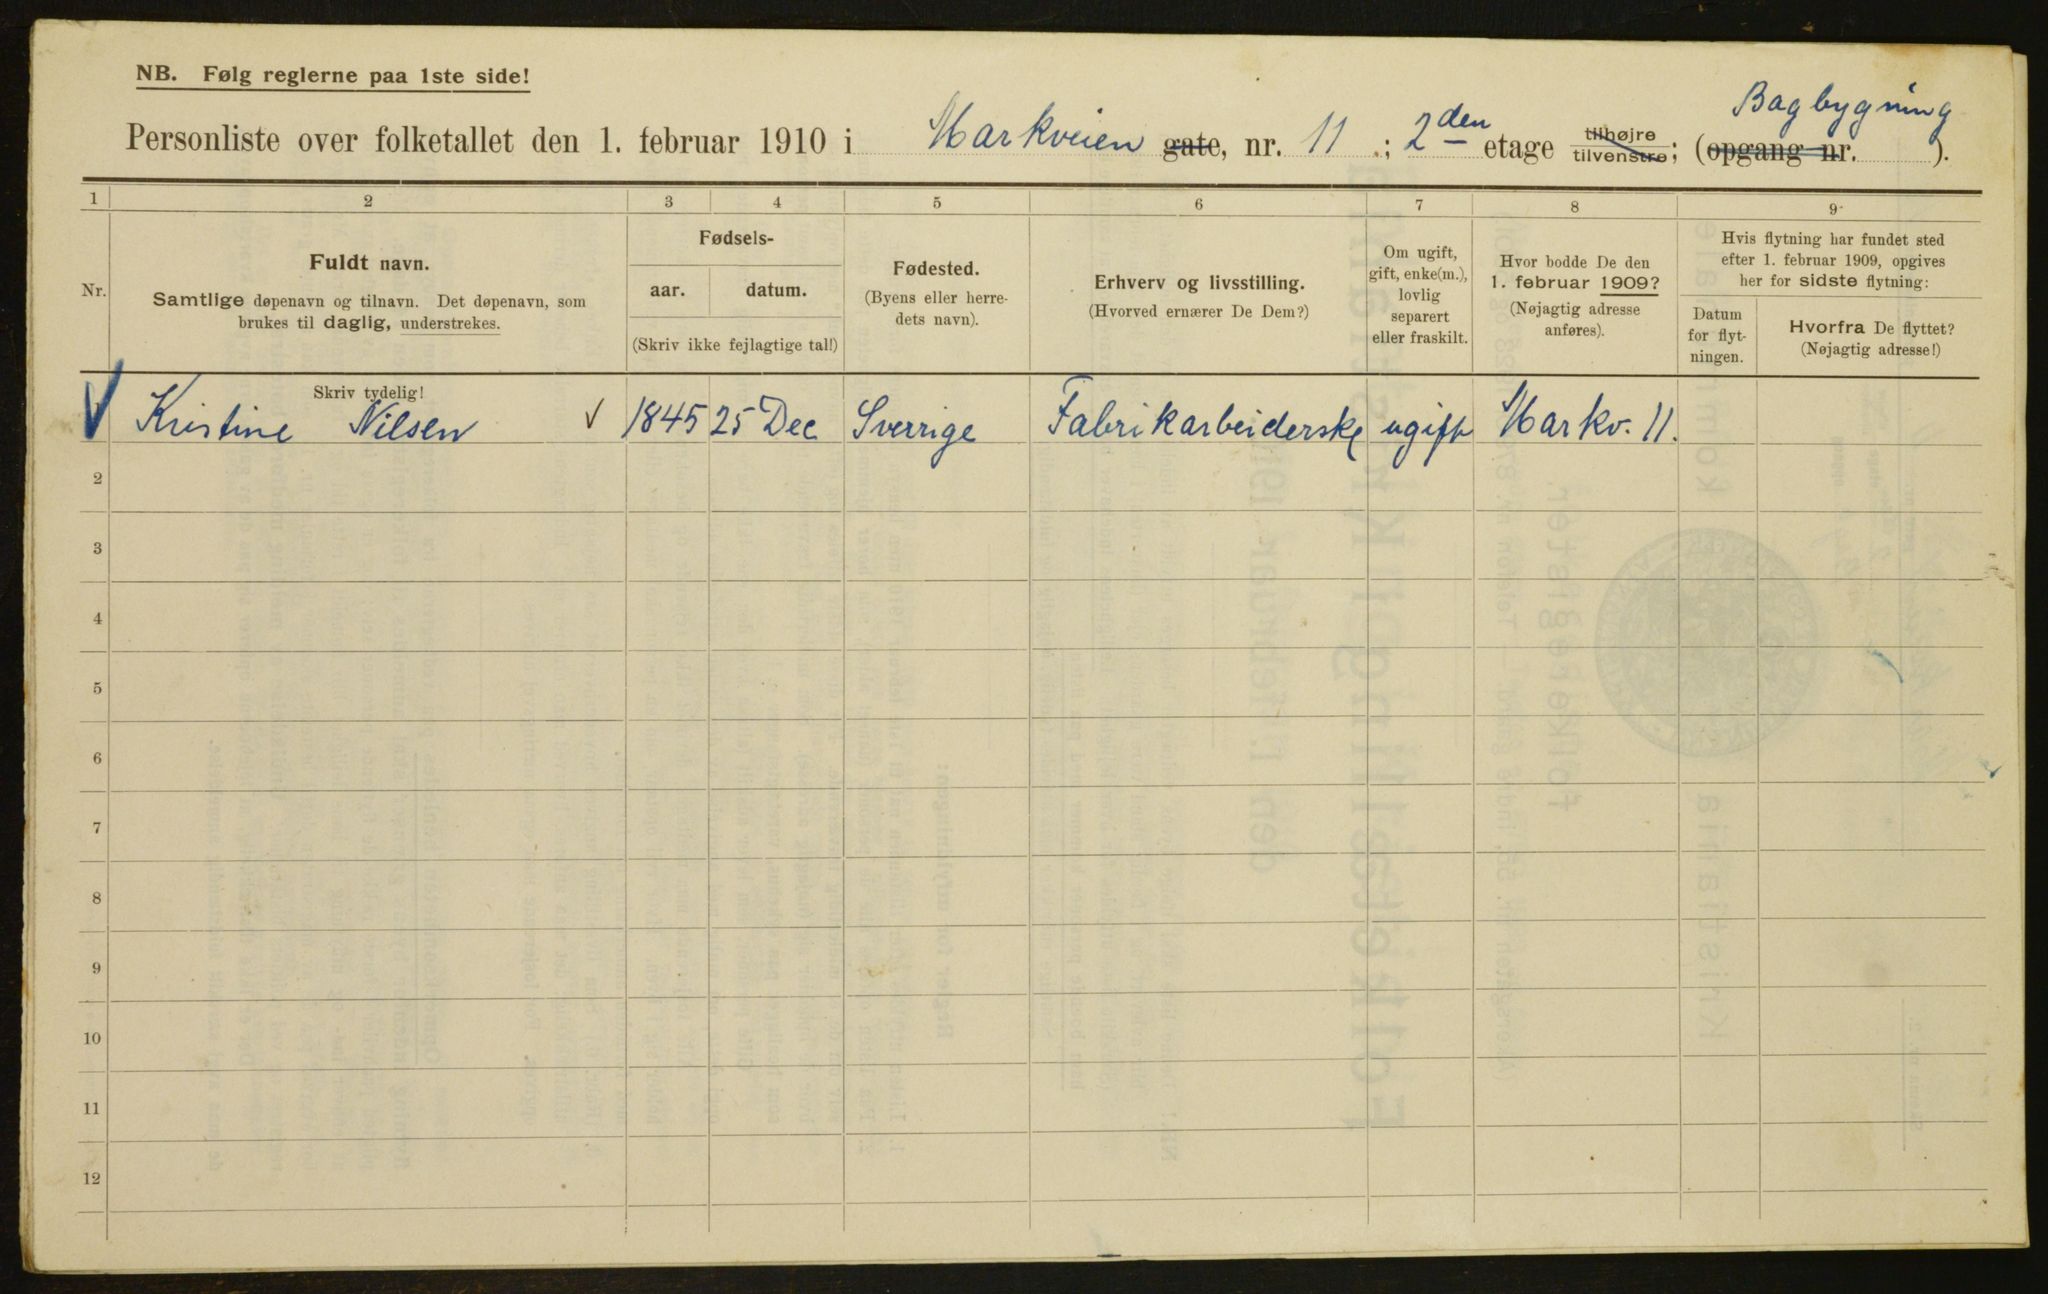 NB. Følg reglerne paa 1ste side!
Bagbygning
Personliste over folketallet den 1. februar 1910 i Markveien gate, nr. 11 ; 2den etage tilhøjre tilvenstre; (opgang nr. ).
1 2 3 4 5 6 7 8 9
Nr.
Fuldt navn.
Samtlige døpenavn og tilnavn. Det døpenavn, som
brukes til daglig, understrekes.
Fødsels-
aar. datum.
(Skriv ikke fejlagtige tal!)
Fødested.
(Byens eller herre-
dets navn).
Erhverv og livsstilling.
(Hvorved ernærer De Dem?)
Om ugift,
gift, enke(m.),
lovlig
separert
eller fraskilt.
Hvor bodde De den
1. februar 1909?
(Nøjagtig adresse
anføres).
Hvis flytning har fundet sted
efter 1. februar 1909, opgives
her for sidste flytning:
Datum
for flyt-
ningen.
Hvorfra De flyttet?
(Nøjagtig adresse!)
Skriv tydelig!
Kristine Nilsen 1845 25 Dec Sverrige Fabrikarbeiderske ugift Markv. 11.
2
3
4
5
6
7
8
9
10
11
12